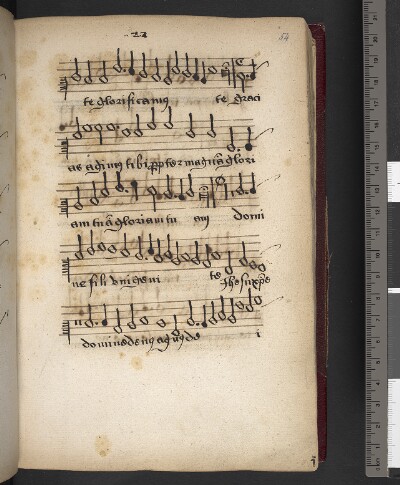 22
54
te glorificamus te graci
as agimus tibi ppter magnā glori
am tuā gloriam tu am domi
ne fili unigeni te Jhesu xpe
domine deus agnus de i